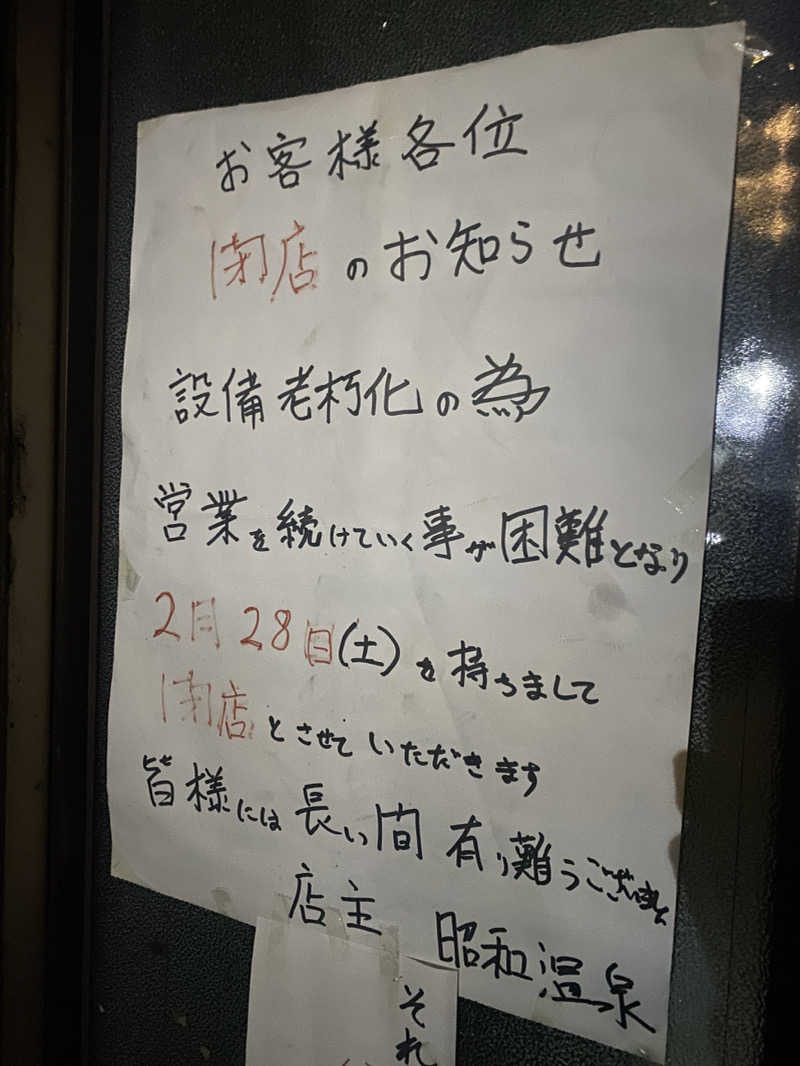 お客様各位
閉店のお知らせ
設備老朽化の為
営業を続けていく事が困難となり
2月28日(土)を持ちまして
閉店とさせていただきます
皆様には長い間有り難うございました
店主 昭和温泉
それ